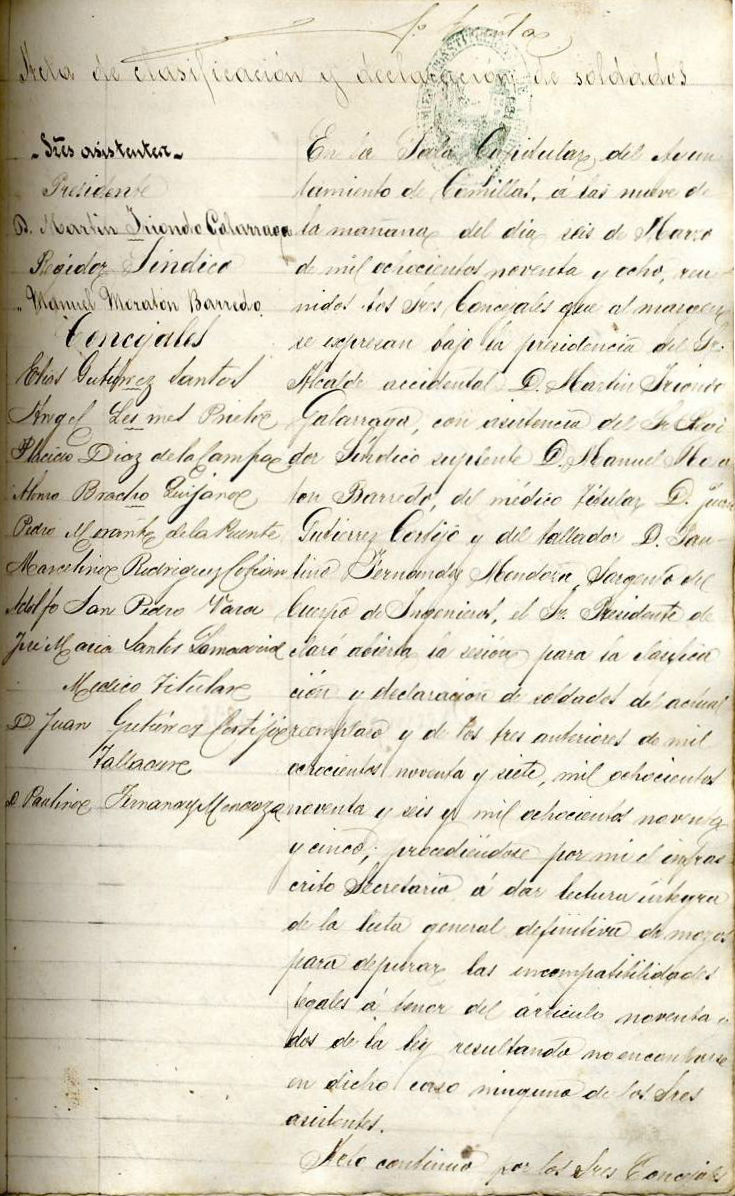 Acta de clasificación y declaración de soldados
Sres asistentes
Presidente
D. Martín Iriondo Galarraga
Regidor Síndico
Manuel Moratón Barredo
Concejales
Elías Gutiérrez Santos
Ángel Lesmes Prieto
Placido Díaz de la Campa
Alonso Bracho Quijano
Pedro Morante de la Puente
Marcelino Rodriguez Cofiño
Adolfo San Pedro Vara
José María Santos Lamadrid
Medico Titular
D Juan Gutiérrez Cortijo
Tallador
D Paulino Fernandez Mendoza
En la Sala Capitular del Ayun
tamiento de Comillas, á las nueve de
la mañana del dia seis de Marzo
de mil ochocientos noventa y ocho, reu
nidos los Sres Concejales que al margen
se expresan bajo la presidencia del Sr.
Alcalde accidental D. Martin Iriondo
Galarraga, con asistencia del Sr Regi
dor Síndico suplente D. Manuel Mora
ton Barredo, del médico titular D. Juan
Gutierrez Cortijo y del tallador D. Pau-
lino Fernandez Mendoza, Sargento del
Cuerpo de Ingenieros, el Sr. Presidente de
claró abierta la sesión para la clasifica
ción y declaracion de soldados del actual
reemplazo y de los tres anteriores de mil
ochocientos noventa y siete, mil ochocientos
noventa y seis y mil ochocientos noventa
y cinco; procediéndose por mi el infras-
crito Secretario á dar lectura íntegra
de la lista general definitiva de mozos
para depurar las incompatibilidades
legales a tenor del árticulo noventa y
dos de la ley resultando no encontrarse
en dicho caso ninguno de los Sres
asistentes.
Acto continuo por los Sres Concejales